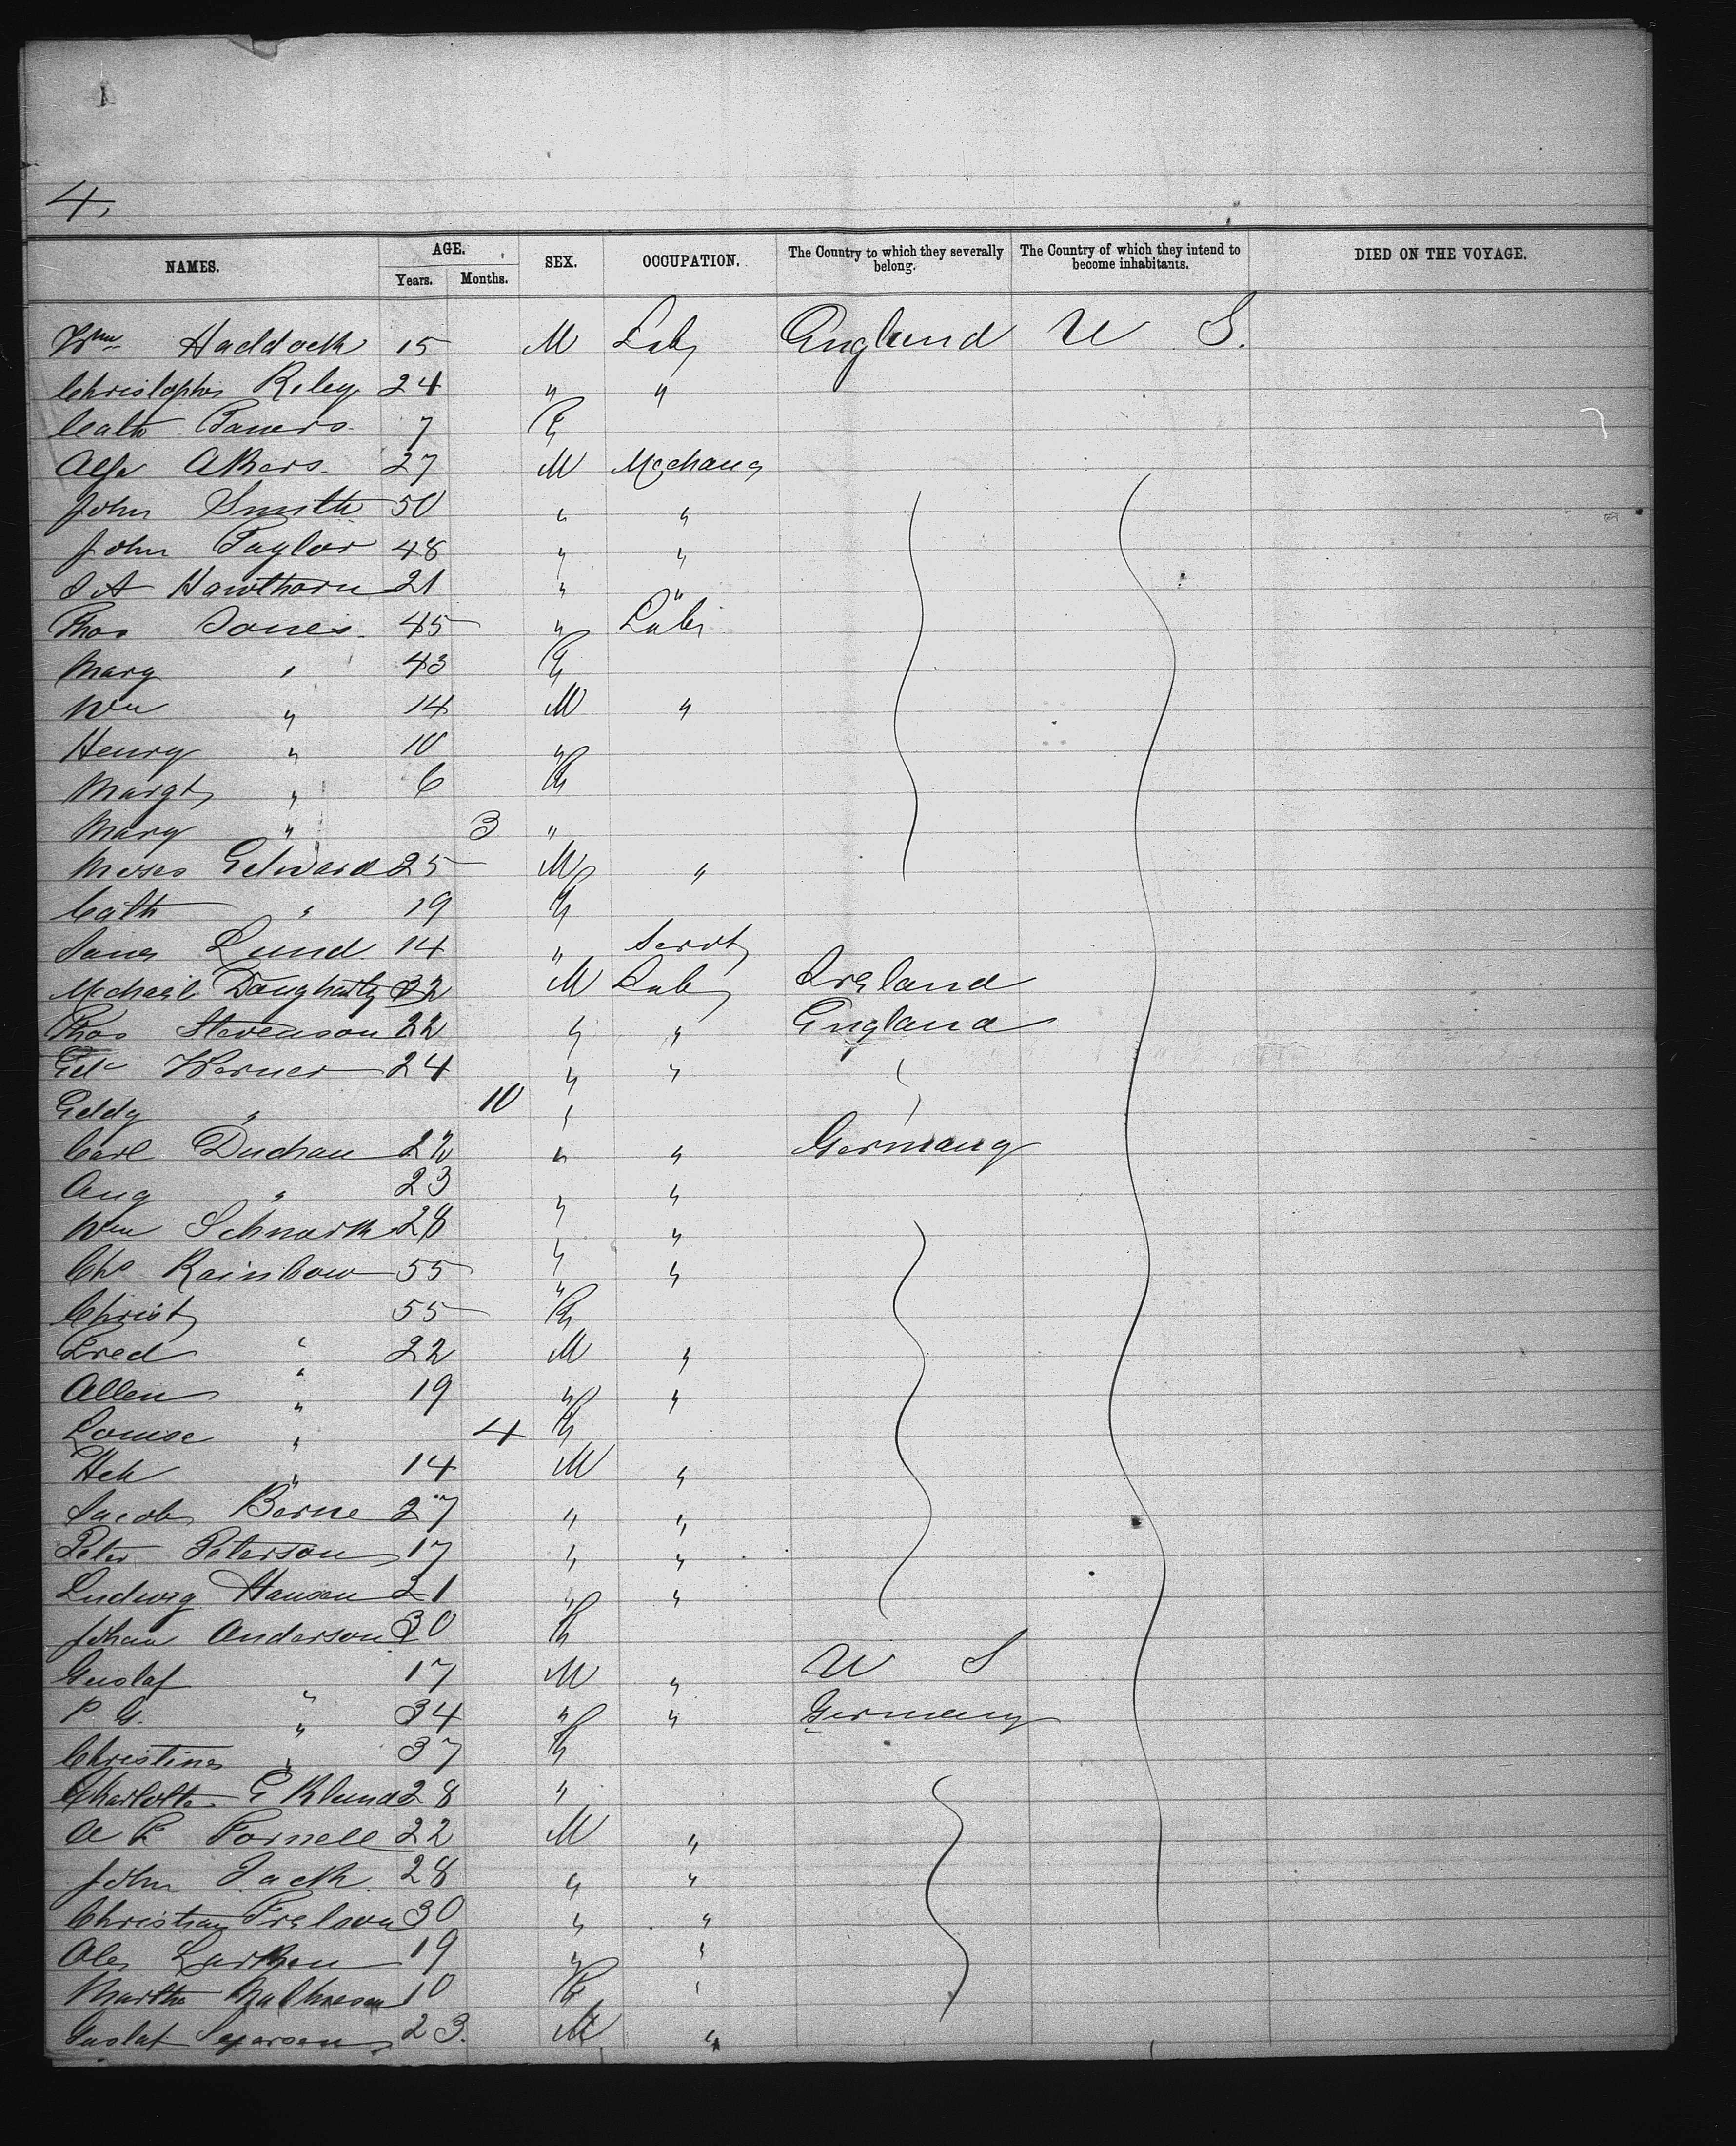 4,
NAMES. AGE. SEX. OCCUPATION. The Country to which they severally belong. The Country of which they intend to become inhabitants. DIED ON THE VOYAGE.
Years. Months.
Wm Haddock 15 M Lab England U S.
Christopher Riley 24 " "
Cath 7 F
Alf Akers 27 M Mechanc
John Smith 50 " "
John Taylor 48 " "
Hawthorn 21 " "
Thos Jones 45 " Labr
Mary " 43 F
Wm " 14 M "
Henry " 10 "
Margt " 6 F
Mary " 3 "
Moses Edward 25 M "
Cath " 19 F
Lund 14 " Servt
Michael Daugherty 32 M Lab Ireland
Thos Stevenson 22 " " England
Edw Warner 24 " "
Eddy " 10 "
Carl Duchau 22 " " Germany
Aug " 23 " "
Wm Schnark 28 " "
Chs Rainbow 55 " "
Christ " 55 F
Fred " 22 M "
Allen " 19 " "
Louise " 4 F
Hch " 14 M "
Jacob Berne 27 " "
Peter Peterson 17 " "
Ludwig Hansen 21 " "
Johan Anderson 30 F
Gustaf " 17 M " U S
P G. " 34 " " Germany
Christine " 37 F
Charlotte Eklund 28 "
A F Fornell 22 M "
John Jack 28 " "
Christian 30 " "
Ole Larken 19 " "
Martha 10 F "
Gustaf 23. M "